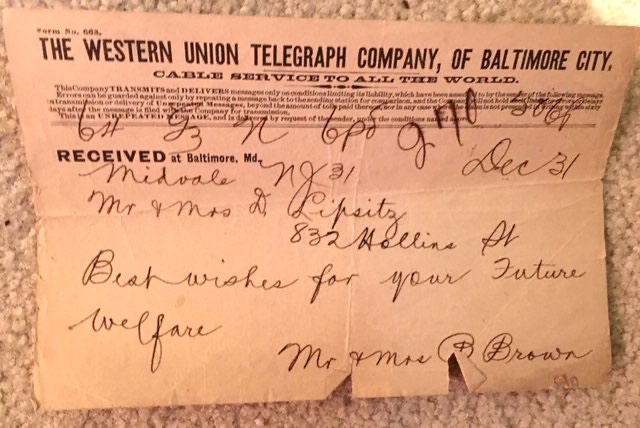 Form No. 663.
THE WESTERN UNION TELEGRAPH COMPANY, OF BALTIMORE CITY.
CABLE SERVICE TO ALL THE WORLD.
This Company TRANSMITS and DELIVERS messages only on conditions limiting its liability, which have been assented to by the sender of the following message.
Errors can be guarded against only by repeating a message back to the sending station for comparison, and the Company will not hold
transmission or delivery of Unrepeated Messages, beyond the amount of
days after the message is filed with the Company for transmission.
This is an UNREPEATED MESSAGE, and is delivered by request of the sender, under the conditions named above.
RECEIVED at Baltimore, Md. Dec 31
Midvale NJ 31
Mr & Mrs D. Lipsitz
832 Hollins St
Best wishes for your Future
Welfare
Mr & Mrs B Brown